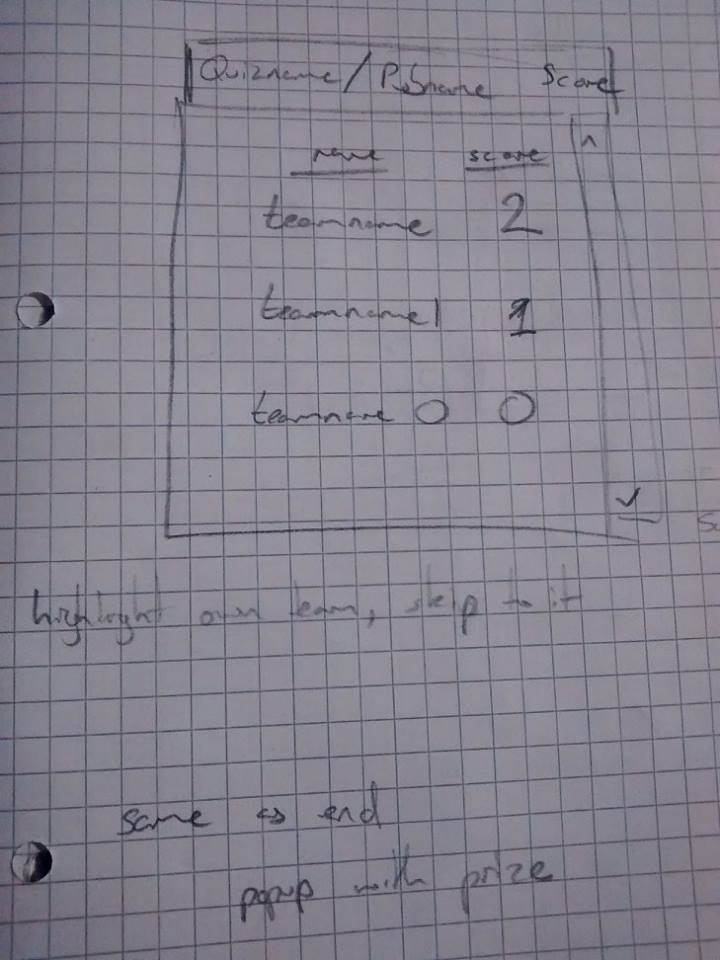 Quizname/Pubname Score
name score
teamname 2
teamname1 1
teamname 0 0
highlight own team, skip to it
same as end
popup with prize